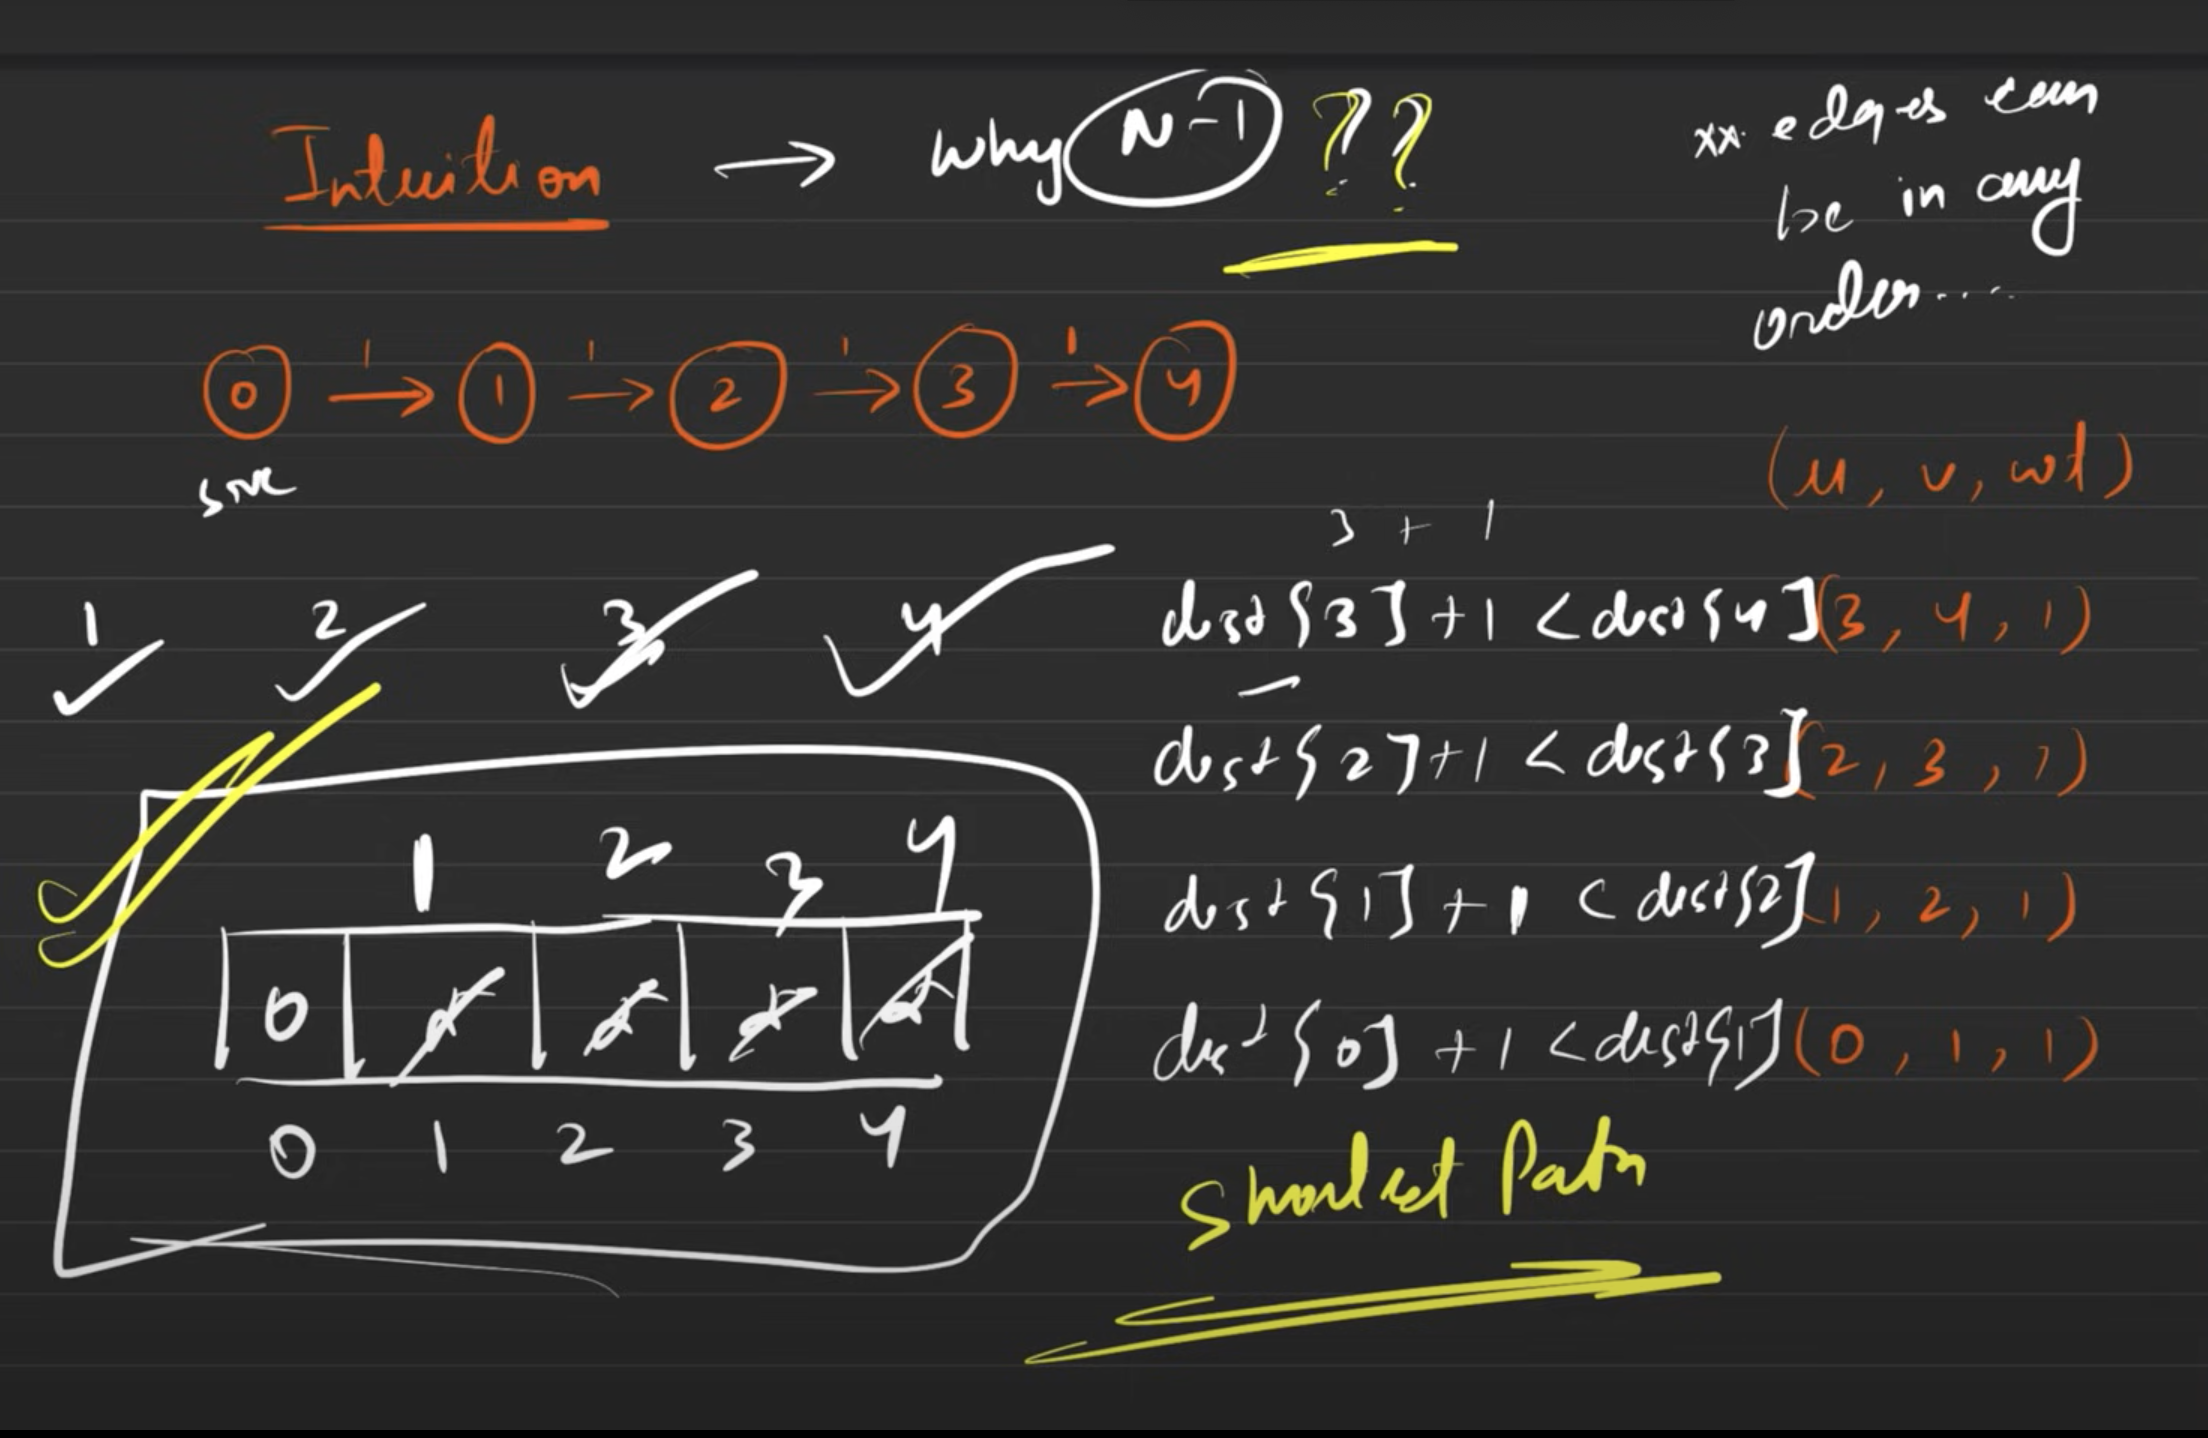 Intuition → Why N-1 ??
** edges can
be in any
order....
0 → 1 → 2 → 3 → 4
1 1 1 1
src
(u, v, wt)
3 + 1
1 2 3 4
dist[3]+1 < dist[4] (3, 4, 1)
dist[2]+1 < dist[3] (2, 3, 1)
dist[1]+1 < dist[2] (1, 2, 1)
dist[0]+1 < dist[1] (0, 1, 1)
1 2 3 4
0
0 1 2 3 4
Shortest Path